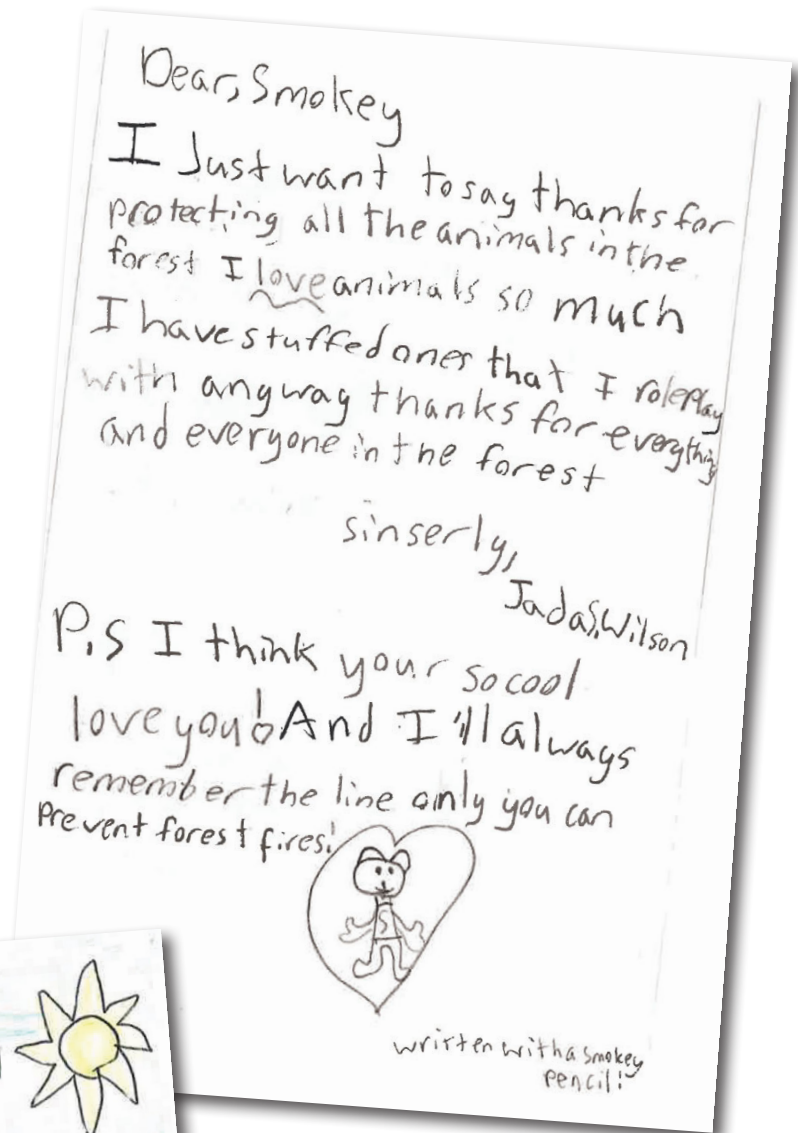 Dear, Smokey
I Just want to say thanks for
protecting all the animals in the
forest I love animals so much
I have stuffed ones that I roleplay
with anyway thanks for everything
and everyone in the forest
sinserly,
Jada S. Wilson
P.S I think your so cool
love you! And I'll always
remember the line only you can
Prevent forest fires!
S
written with a Smokey
pencil!